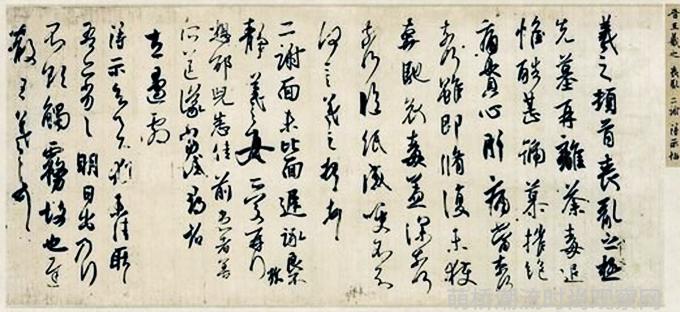 晋王羲之 喪亂 二謝 得示帖
羲之頓首喪亂之極
先墓再離荼毒追
惟酷甚號慕摧絕
痛貫心肝痛當奈何
奈何雖即脩復未獲
奔馳哀毒益深奈何
奈何臨紙感哽不知
何言羲之頓首頓首
二謝面未比面遲詠良
不靜羲之女愛再拜
想邵兒悉佳前患者善
所送議當試尋省
左邊劇
得示知足下猶未佳耿耿
吾亦劣劣明日出乃行
不欲觸霧故也遲
散王羲之頓首